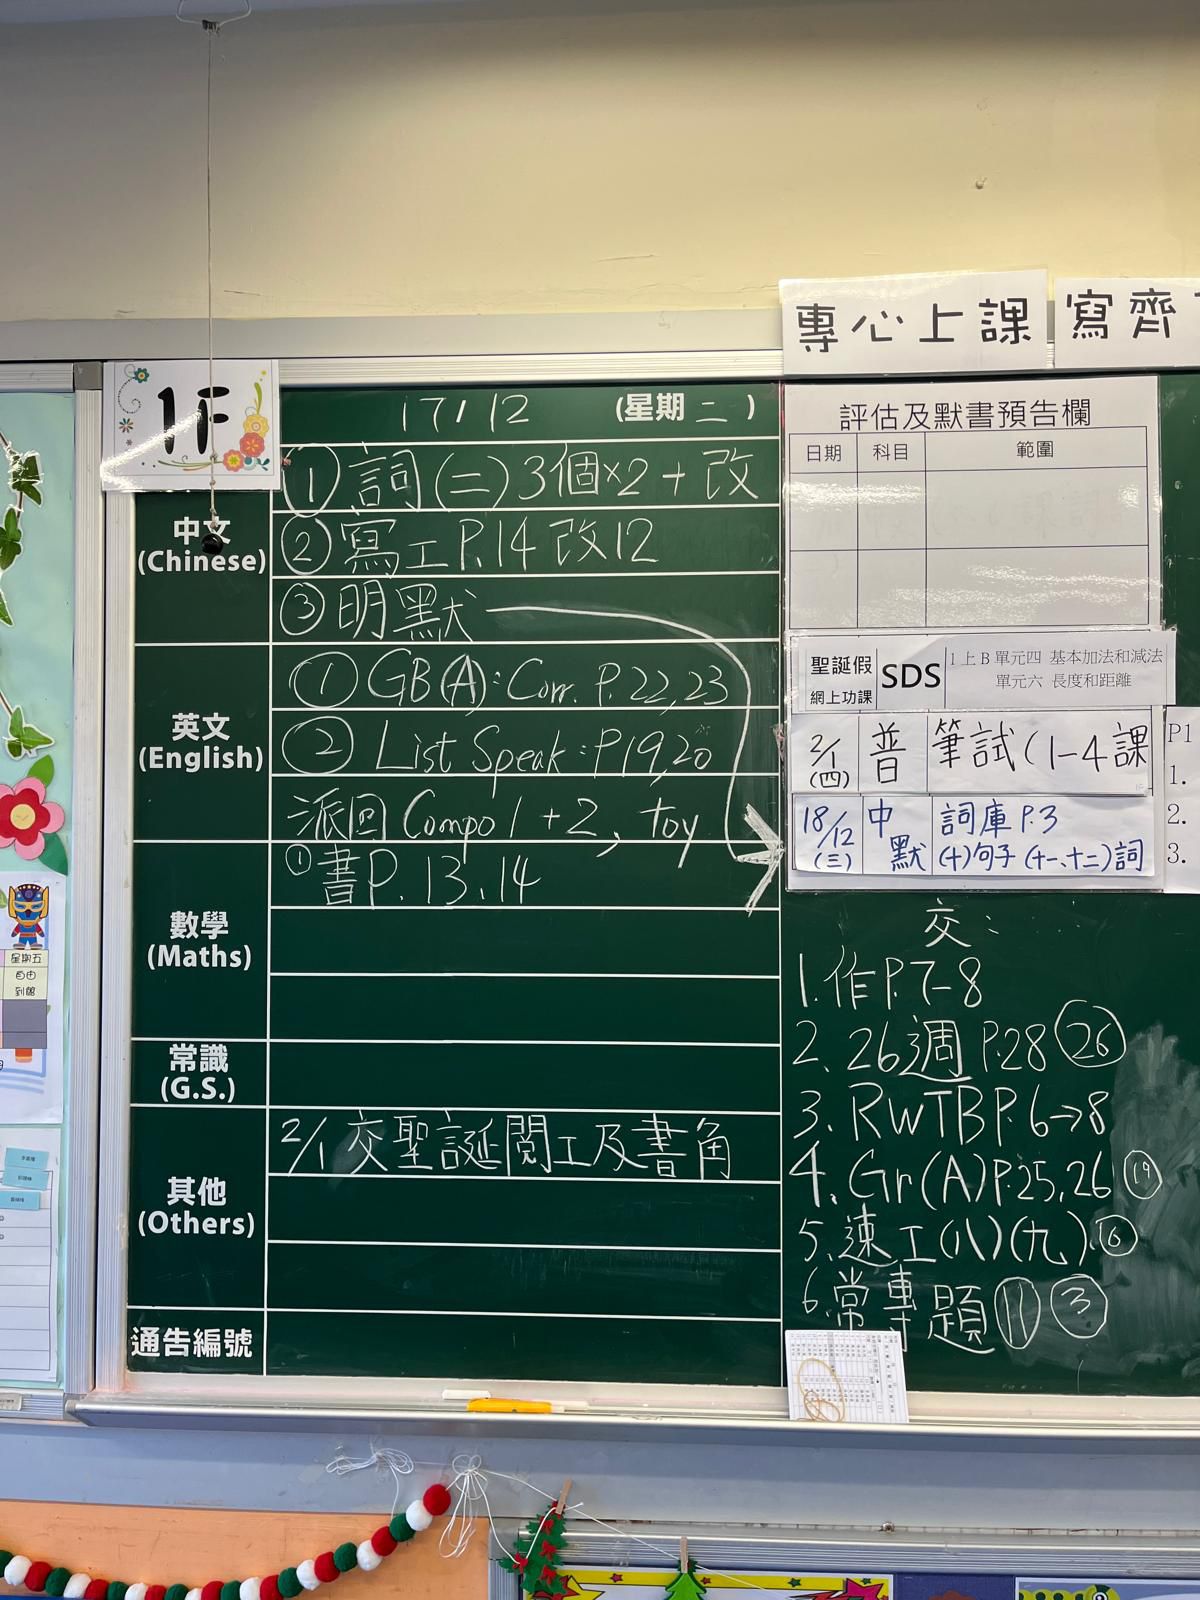 專心上課
寫齊
1F
17/12 (星期二)
中文
(Chinese)
① 詞(二)3個×2+改
② 寫工P.14改12
③ 明默
英文
(English)
① GB(A): Corr. P.22,23
② List Speak: P19,20
派回 Compo 1 + 2, toy
數學
(Maths)
① 書P.13、14
常識
(G.S.)
其他
(Others)
2/1 交聖誕閱工及書角
通告編號
評估及默書預告欄
日期 科目 範圍
聖誕假
網上功課
SDS
1上B單元四 基本加法和減法
單元六 長度和距離
2/1
(四)
普
筆試(1-4課
18/12
(三)
中
默
詞庫P.3
(十)句子(十一、十二)詞
P1
1.
2.
3.
交:
1.作P.7-8
2. 26週 P.28 ㉖
3. RWTB P.6→8
4. Gr(A)P.25,26 ⑲
5.速工(八)(九)⑥
6.常專題⑪③
星期五
自由
到館